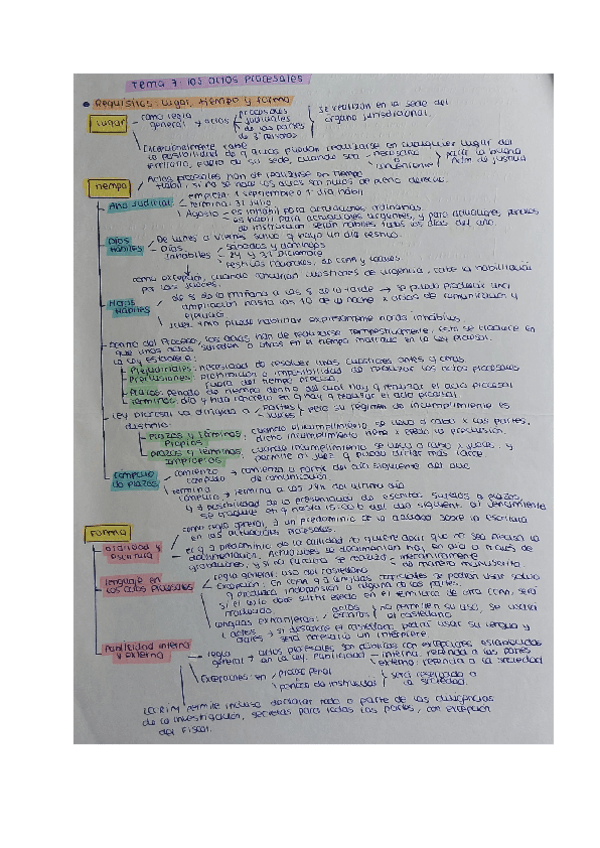 Tema 7: los actos procesales
• Requisitos: lugar, tiempo y forma
LUGAR
- como regla general → actos
procesales
judiciales
de las partes
de 3º
se realizan en la sede del
órgano jurisdiccional.
- Excepcionalmente, cabe
la posibilidad de q actos puedan realizarse en cualquier lugar del
territorio, fuera de su sede, cuando sea
necesario
o
conveniente
para la buena
Adm de justicia
Tiempo
Actos procesales han de realizarse en tiempo
hábil, si no se hace los actos son nulos de pleno derecho.
Año judicial
- empieza: 1 septiembre o 1º día hábil
- termina: 31 julio
Agosto
- es inhábil para actuaciones ordinarias
- es hábil para actuaciones urgentes, y para actuaciones penales
de instrucción serán hábiles todos los días del año.
Días hábiles
- De lunes a viernes salvo q haya un día festivo.
- Días inhábiles
- sábados y domingos
- 24 y 31 diciembre
- festivos nacionales, de CCAA y locales
como excepción, cuando concurran cuestiones de urgencia, cabe la habilitación
por los jueces.
Horas hábiles
- de 8 de la mañana a las 8 de la tarde → se puede producir una
ampliación hasta las 10 de la noche x actos de comunicación y
ejecución
- juez tmb puede habilitar expresamente horas inhábiles.
que unos actos suceden a otros en el tiempo marcado en la ley procesal.
La ley establece:
- Prejudiciales: necesidad de resolver unas cuestiones antes q otras.
- Preclusiones: prohibición o imposibilidad de realizar los actos procesales
fuera del tiempo preciso
- Plazos: periodo de tiempo dentro del cual hay q realizar el acto procesal
- Términos: día y hora concreto en q hay q realizar el acto procesal.
- Ley procesal va dirigida a
- partes
- jueces
pero su régimen de incumplimiento es
distinto:
- Plazos y términos
Propios:
cuando el incumplimiento se lleva a cabo x las partes,
dicho incumplimiento lleva x efecto la preclusión.
- plazos y términos
Impropios
cuando incumplimiento se lleva a cabo x jueces, y
permite al juez q pueda dictar más tarde.
Cómputo
de plazos
- comienzo
cómputo
comienza a partir del día siguiente del acto
de comunicación
- termina
cómputo → termina a las 24h del último día
y ∃ posibilidad de la presentación de escritos sujetos a plazos,
se puede en q hasta 15:00 h del día siguient. al vencimiento
FORMA
oralidad y
escritura
- como regla general, ∃ un predominio de la oralidad sobre la escritura
en las actuaciones procesales.
- el q ∃ predominio de la oralidad no quiere decir que no sea preciso la
documentación. Actuaciones se documentan hoy en día a través de
grabaciones, y si no funciona se realiza
- mecánicamente
- de manera manuscrita.
lenguaje en
los actos procesales
- regla general: uso del castellano
- Excepción: En CCAA q ∃ lenguas cooficiales se podrán usar salvo
q produzca indefensión a alguna de las partes.
Si el acto debe surtir efecto en el territorio de otra CCAA, será
traducido
- Lenguas extranjeras:
actos
escritos
no permiten su uso, se usará
el castellano
↓ actos → si desconoce el castellano, podrá usar su lengua y
será necesario un intérprete
Publicidad interna
y externa
- regla general
- actos procesales son públicos con excepciones establecidas
en la ley. Publicidad
- interna: referida a las partes
- externa: referida a la sociedad
- Excepciones: en
- proceso penal
será reservado a
la sociedad.
LECRIM permite incluso declarar todo o parte de las diligencias
de la investigación, secretas para todas las partes, con excepción
del Fiscal.